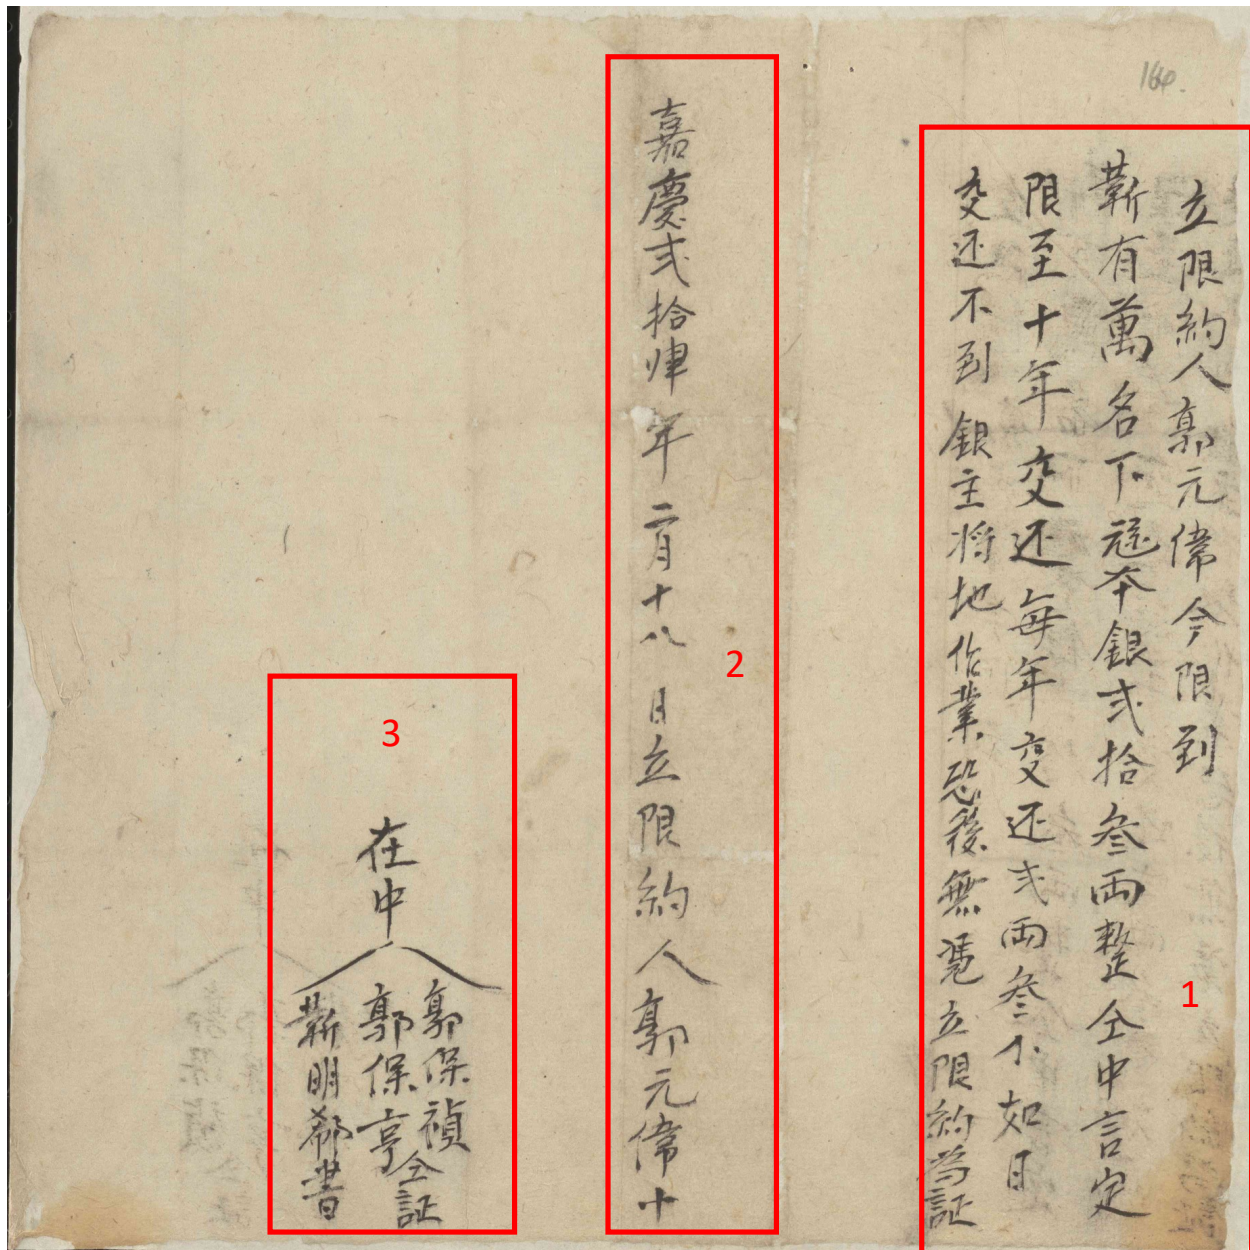 164.
立限約人郭元偉今限到
靳有萬名下冠本銀弍拾叁兩整仝中言定
限至十年交还每年交还弍兩叁不如日
交还不到銀主将地作業恐後無憑立限約為証
1
嘉慶弍拾肆年二月十八日立限約人郭元偉十
2
3
在中
郭保禎
郭保亨
仝証
靳明郗書